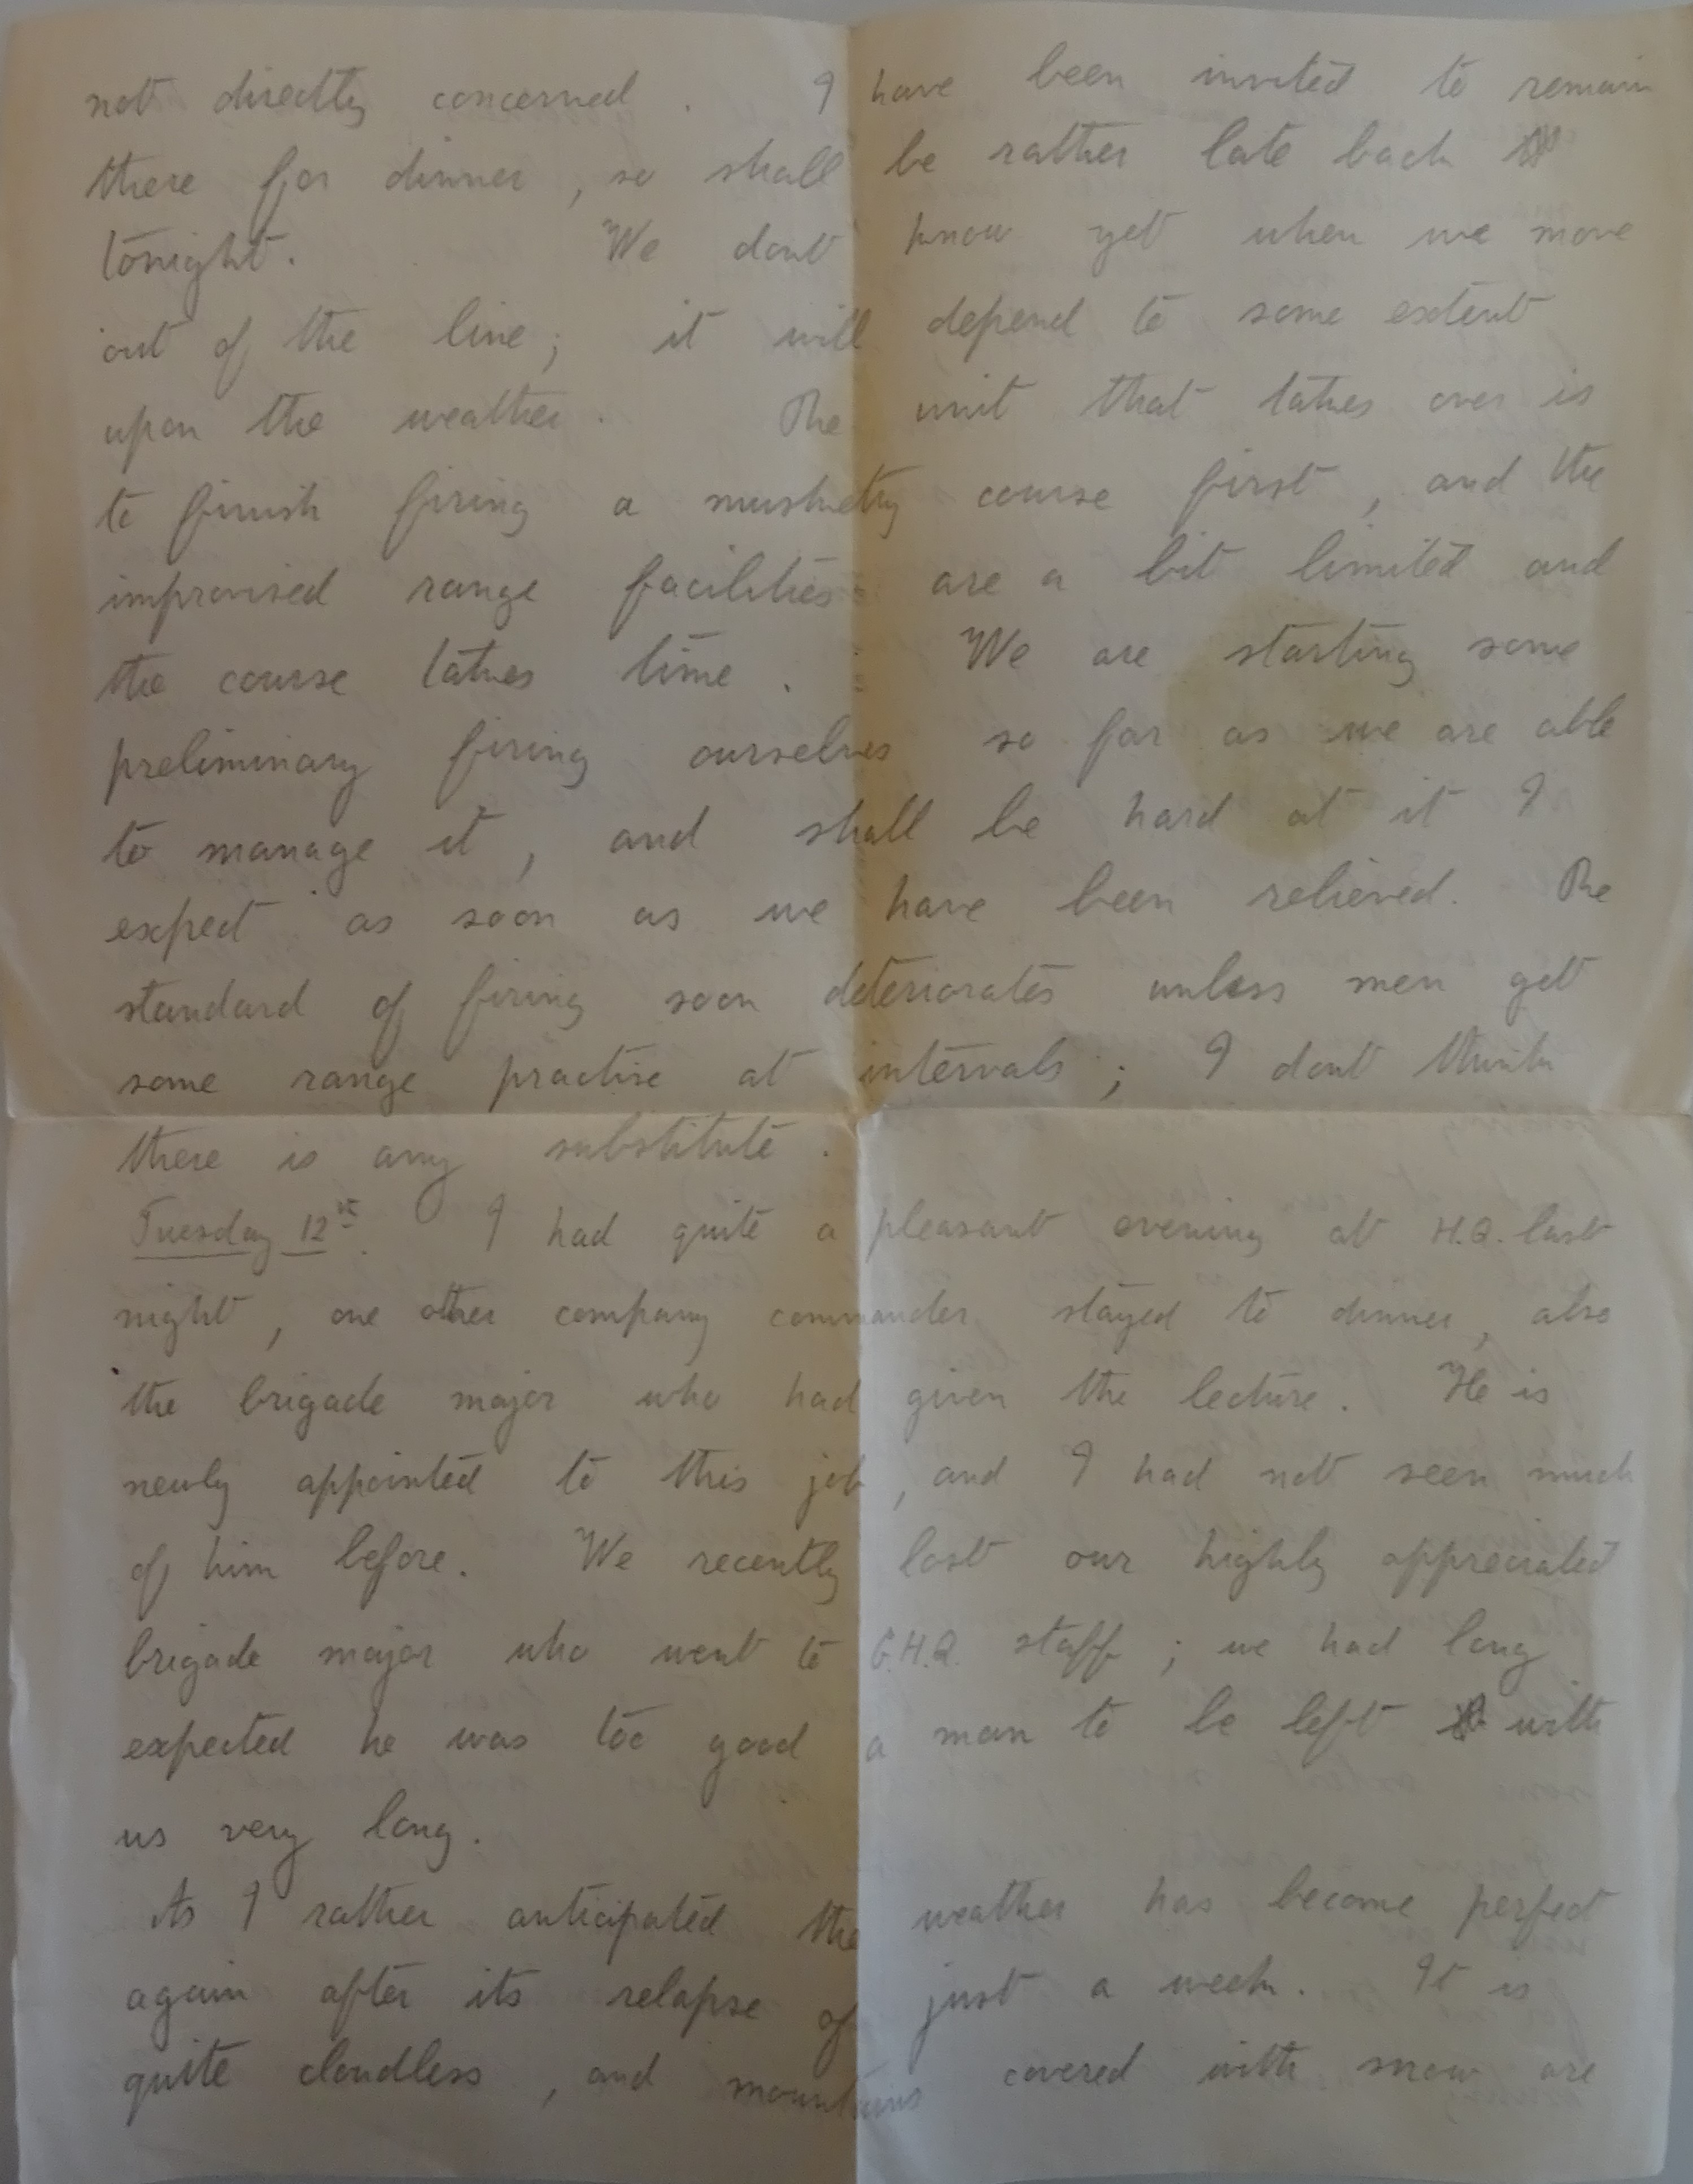 not directly concerned . I have been invited to remain
there for dinner , so shall be rather late back
tonight. We dont know yet when we move
out of the line; it will depend to some extent
upon the weather . The unit that takes over is
to finish firing a musketry course first , and the
improvised range facilities are a bit limited and
the course takes time . We are starting some
preliminary firing ourselves so far as we are able
to manage it , and shall be hard at it I
expect as soon as we have been relieved. The
standard of firing soon deteriorates unless men get
some range practise at intervals ; I dont think
there is any substitute .
Tuesday 12th. I had quite a pleasant evening at H.Q. last
night , one other company commander stayed to dinner , also
the brigade major who had given the lecture . He is
newly appointed to this job , and I had not seen much
of him before. We recently lost our highly appreciated
brigade major who went to G.H.Q. staff ; we had long
expected he was too good a man to be left with
us very long .
As I rather anticipated the weather has become perfect
again after its relapse of just a week. It is
quite cloudless , and mountains covered with snow are